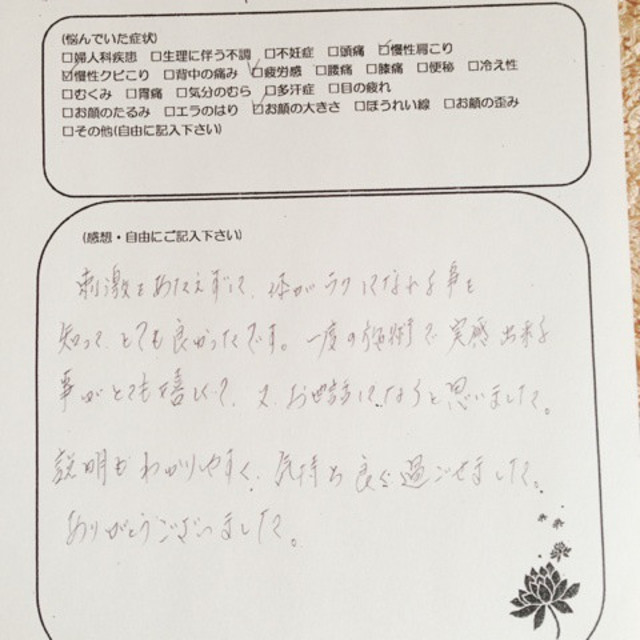 (悩んでいた症状)
□婦人科疾患 □生理に伴う不調 □不妊症 □頭痛 ☑慢性肩こり
☑慢性クビこり □背中の痛み ☑疲労感 □腰痛 □膝痛 □便秘 □冷え性
□むくみ □胃痛 □気分のむら □多汗症 □目の疲れ
□お顔のたるみ □エラのはり ☑お顔の大きさ □ほうれい線 □お顔の歪み
□その他(自由に記入下さい)
(感想・自由にご記入下さい)
刺激をあたえずに、体がラクになれる事を
知って、とても良かったです。一度の施術で実感出来る
事がとても嬉しくて、又、お世話になろうと思いました。
説明もわかりやすく、気持ち良く過ごせました。
ありがとうございました。